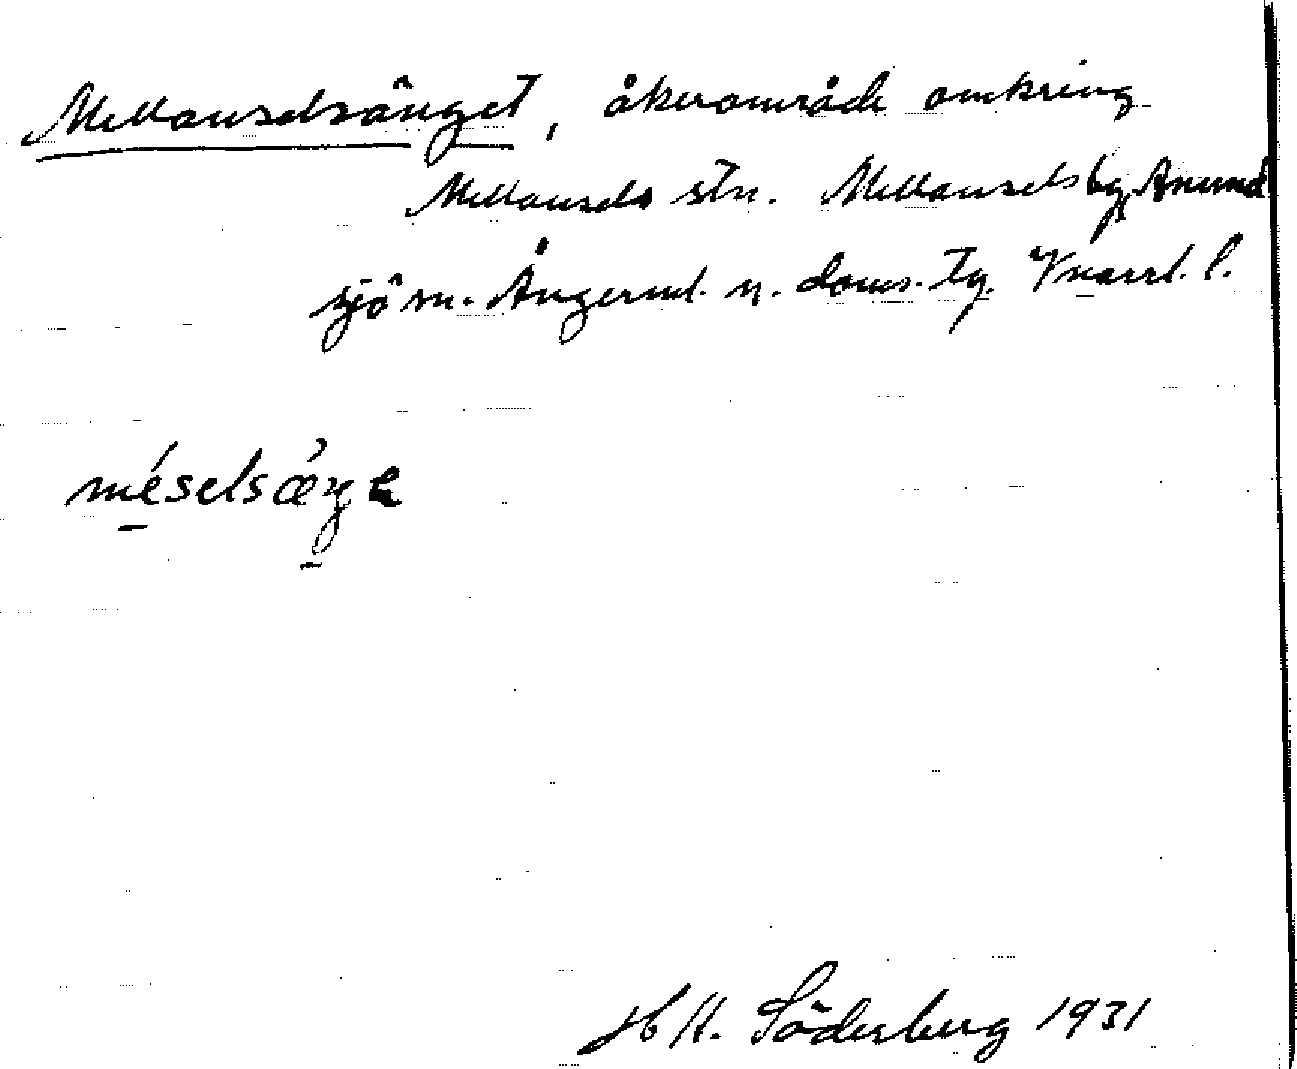 Mellanselsänget, åkerområde omkring
Mellansels stn. Mellansels by, Anund
sjö sn. Ångerml. n. doms. tg. Västernorrl. l.
méselsǽŋe
H. Söderberg 1931